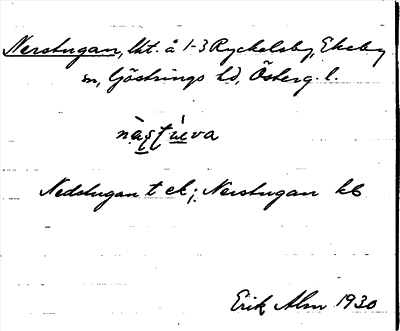 Nerstugan, lht. å 1-3 Ryckelsby, Ekeby
sn, Göstrings hd, Österg. l.
nàʂʈu̇̀eva
Nedstugan t ek; Nerstugan kb
Erik Alm 1930